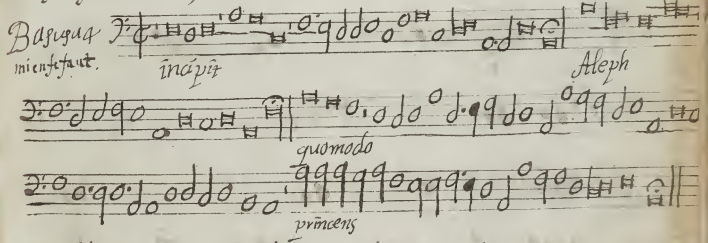 mientefaut.
incipit
Aleph
quomodo
princeps